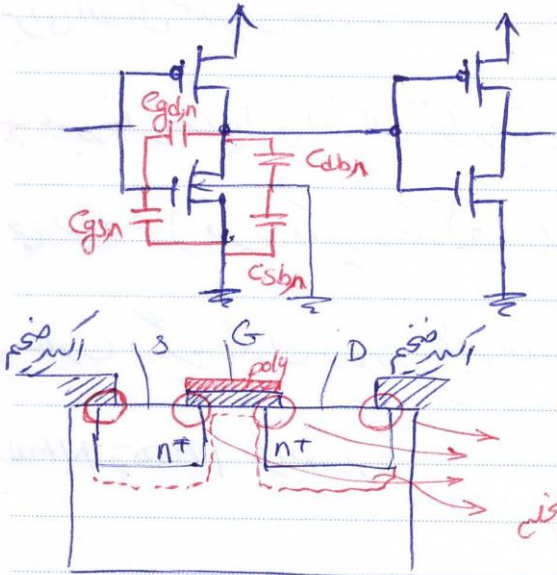 Cgd,n
Cdb,n
Cgs,n
Csb,n
اکسید ضخیم
S
G
poly
D
اکسید ضخیم
n+
n+